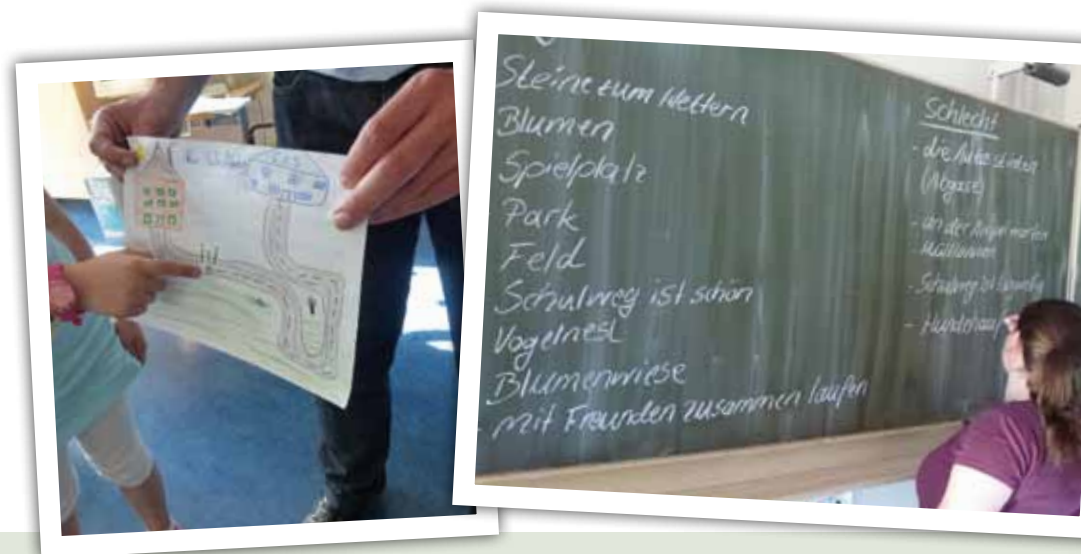 Steine zum klettern
Blumen
Spielplatz
Park
Feld
Schulweg ist schön
Vogelnest
Blumenwiese
- mit Freunden zusammen laufen
Schlecht
- die Autos stinken
(Abgase)
- an der Ampel warten
- Schulweg ist
- Hundehauf